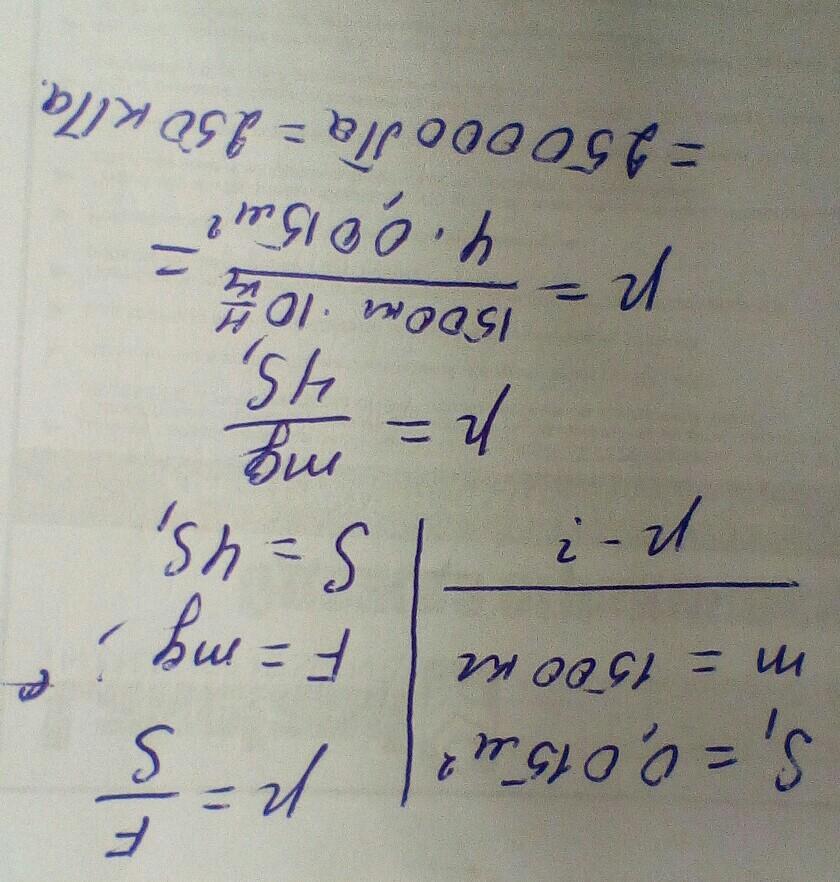 S₁ = 0,015 м²
m = 1500 кг
p - ?
p = F/S
F = mg;
S = 4S₁
p = mg/4S₁
p = 1500 кг · 10 Н/кг / 4 · 0,015 м² =
= 250000 Па = 250 кПа.